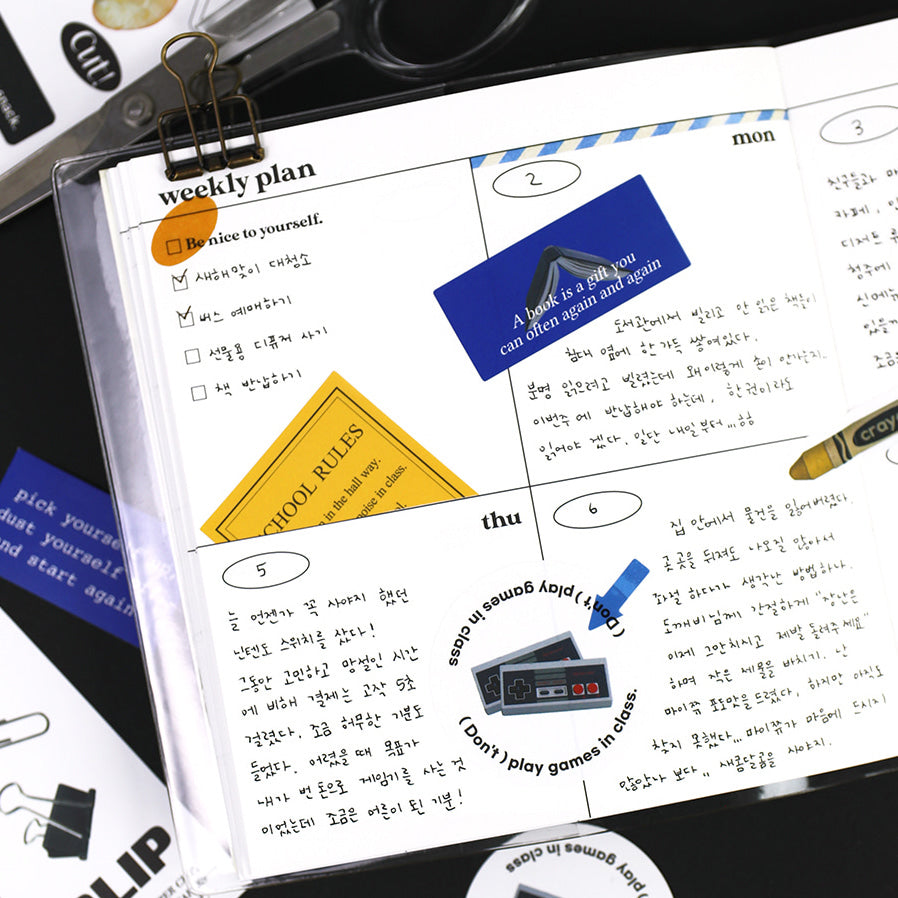 Cut!
snack.
weekly plan
Be nice to yourself.
새해맞이 대청소
버스 예매하기
선물용 디퓨저 사기
책 반납하기
CHOOL RULES
in the hall way.
noise in class.
mon
2
A book is a gift you
can often again and again
도서관에서 빌리고 안 읽은 책들이
침대 옆에 한가득 쌓여있다.
분명 읽으려고 빌렸는데 왜이렇게 손이 안가는지..
이번주에 반납해야 하는데, 한권이라도
읽어야 겠다. 일단 내일부터...ㅎㅎ
3
친구들과
카페,
신메뉴
조금
crayo
pick yourse
dust yourself
and start again
thu
5
늘 언젠가 꼭 사야지 했던
닌텐도 스위치를 샀다!
그동안 고민하고 망설인 시간
에 비해 결제는 고작 5초
걸렸다. 조금 허무한 기분도
들었다. 어렸을 때 목표가
내가 번 돈으로 게임기를 사는 것
이었는데 조금은 어른이 된 기분!
(Don't) play games in class
(Don't) play games in class.
6
집 안에서 물건을 잃어버렸다.
곳곳을 뒤져도 나오질 않아서
좌절 하다가 생각난 방법하나.
도깨비님께 간절하게 "장난은
이제 그만치시고 제발 돌려주세요"
하며 작은 제물을 바치기. 난
마이쮸 포도맛을 드렸다, 하지만 아직도
찾지 못했다... 마이쮸가 마음에 드시지
않았나 보다.. 새콤달콤을 사야지.
LIP
play games in class